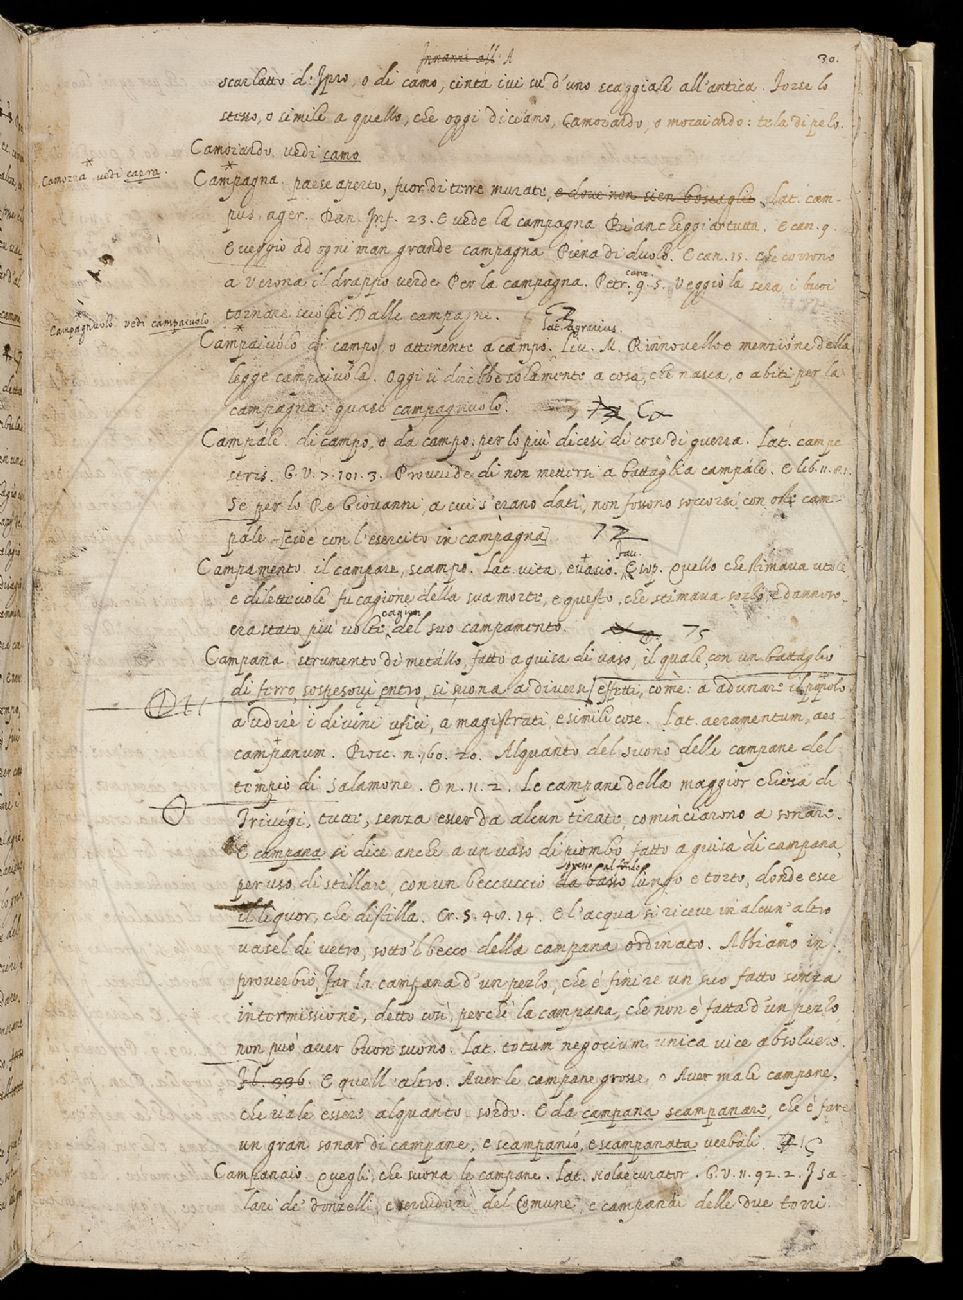 Innanzi all' A
30.
scarlatto d'Ipro, o di camo, cinta ivi su d'uno scaggiale all'antica. Forse lo
stesso, o simile a quello, che oggi diciamo, Camoiardo, o mocaiardo: tela di pelo.
Camoiardo. vedi camo
Camozza vedi capra.
Campagna. paese aperto, fuor di terre murate, e dove non sien boscaglie. Lat. cam-
pus, ager. Dan. Inf. 23. E vede la campagna Biancheggiar tutta. E can. 9.
E veggio ad ogni man grande campagna Piena di duolo. E can. 15. Che corrono
a Verona il drappo verde Per la campagna. Petr. canz. 9. 5. Veggio la sera i buoi
tornare sciolti Dalle campagne.
Lat. agrarius.
Campagnuolo vedi campaiuolo
Campaiuolo di campo, o attenente a campo. Liv. M. Rinnovelloe menzione della
legge campaiuola. Oggi si direbbe solamente a cosa, che nasca, o abiti per la
campagna, quasi campagnuolo.
Campale. di campo, o da campo: per lo più dicesi di cose di guerra. Lat. campe
stris. G. V. 7. 101. 3. Provvide di non mettersi a battaglia campale. E lib. 11.
Se per lo Re Giovanni, a cui s'erano dati, non fossono soccorsi con oste cam-
pale [cioè con l'esercito in campagna] 72
Campamento. il campare, scampo. Lat. vita, evasio. Fav. Esop. Quello che stimava utole
e dilettevole fu cagione della sua morte, e questo, che stimava sozzo e dannoso,
era stato più volte cagion del suo campamento. 75
Campana. strumento di metallo, fatto a guisa di vaso, il quale con un battaglio
di ferro, sospesovi entro, si suona a diversi effetti, come: a adunare il popolo
a udire i divini ufici, a magistrati e simili cose. Lat. aeramentum, aes
campanum. Bocc. n. 60. 20. Alquanto del suono delle campane del
tempio di Salamone. E n. 11. 2. Le campane della maggior chiesa di
Trivigi, tutte, senza esser da alcun tirate, cominciarono a sonare.
E campana si dice anche a un vaso di piombo fatto a guisa di campana,
per uso di stillare, con un beccuccio da basso presso al fondo lungo e torto, donde esce
il liquor, che distilla. Cr. 5. 48. 14. E l'acqua si riceve in alcun'altro
vasel di vetro, sotto'l becco della campana ordinato. Abbiamo in
proverbio, Far la campana d'un pezzo, che è finire un suo fatto senza
intermissione, detto così, perchè la campana, che non è fatta d'un pezzo,
non può aver buon suono. Lat. totum negocium unica vice absolvere.
E quell'altro. Aver le campane grosse, o Aver male campane,
che vale essere alquanto sordo. E da campana scampanare, che è fare
un gran sonar di campane, e scampanio, e scampanata verbali.
Campanaio. Quegli, che suona le campane. Lat. nolae curator. G. V. 11. 92. 2. I sa
lari de' donzelli, e servidori del Comune, e campanai delle due torri.